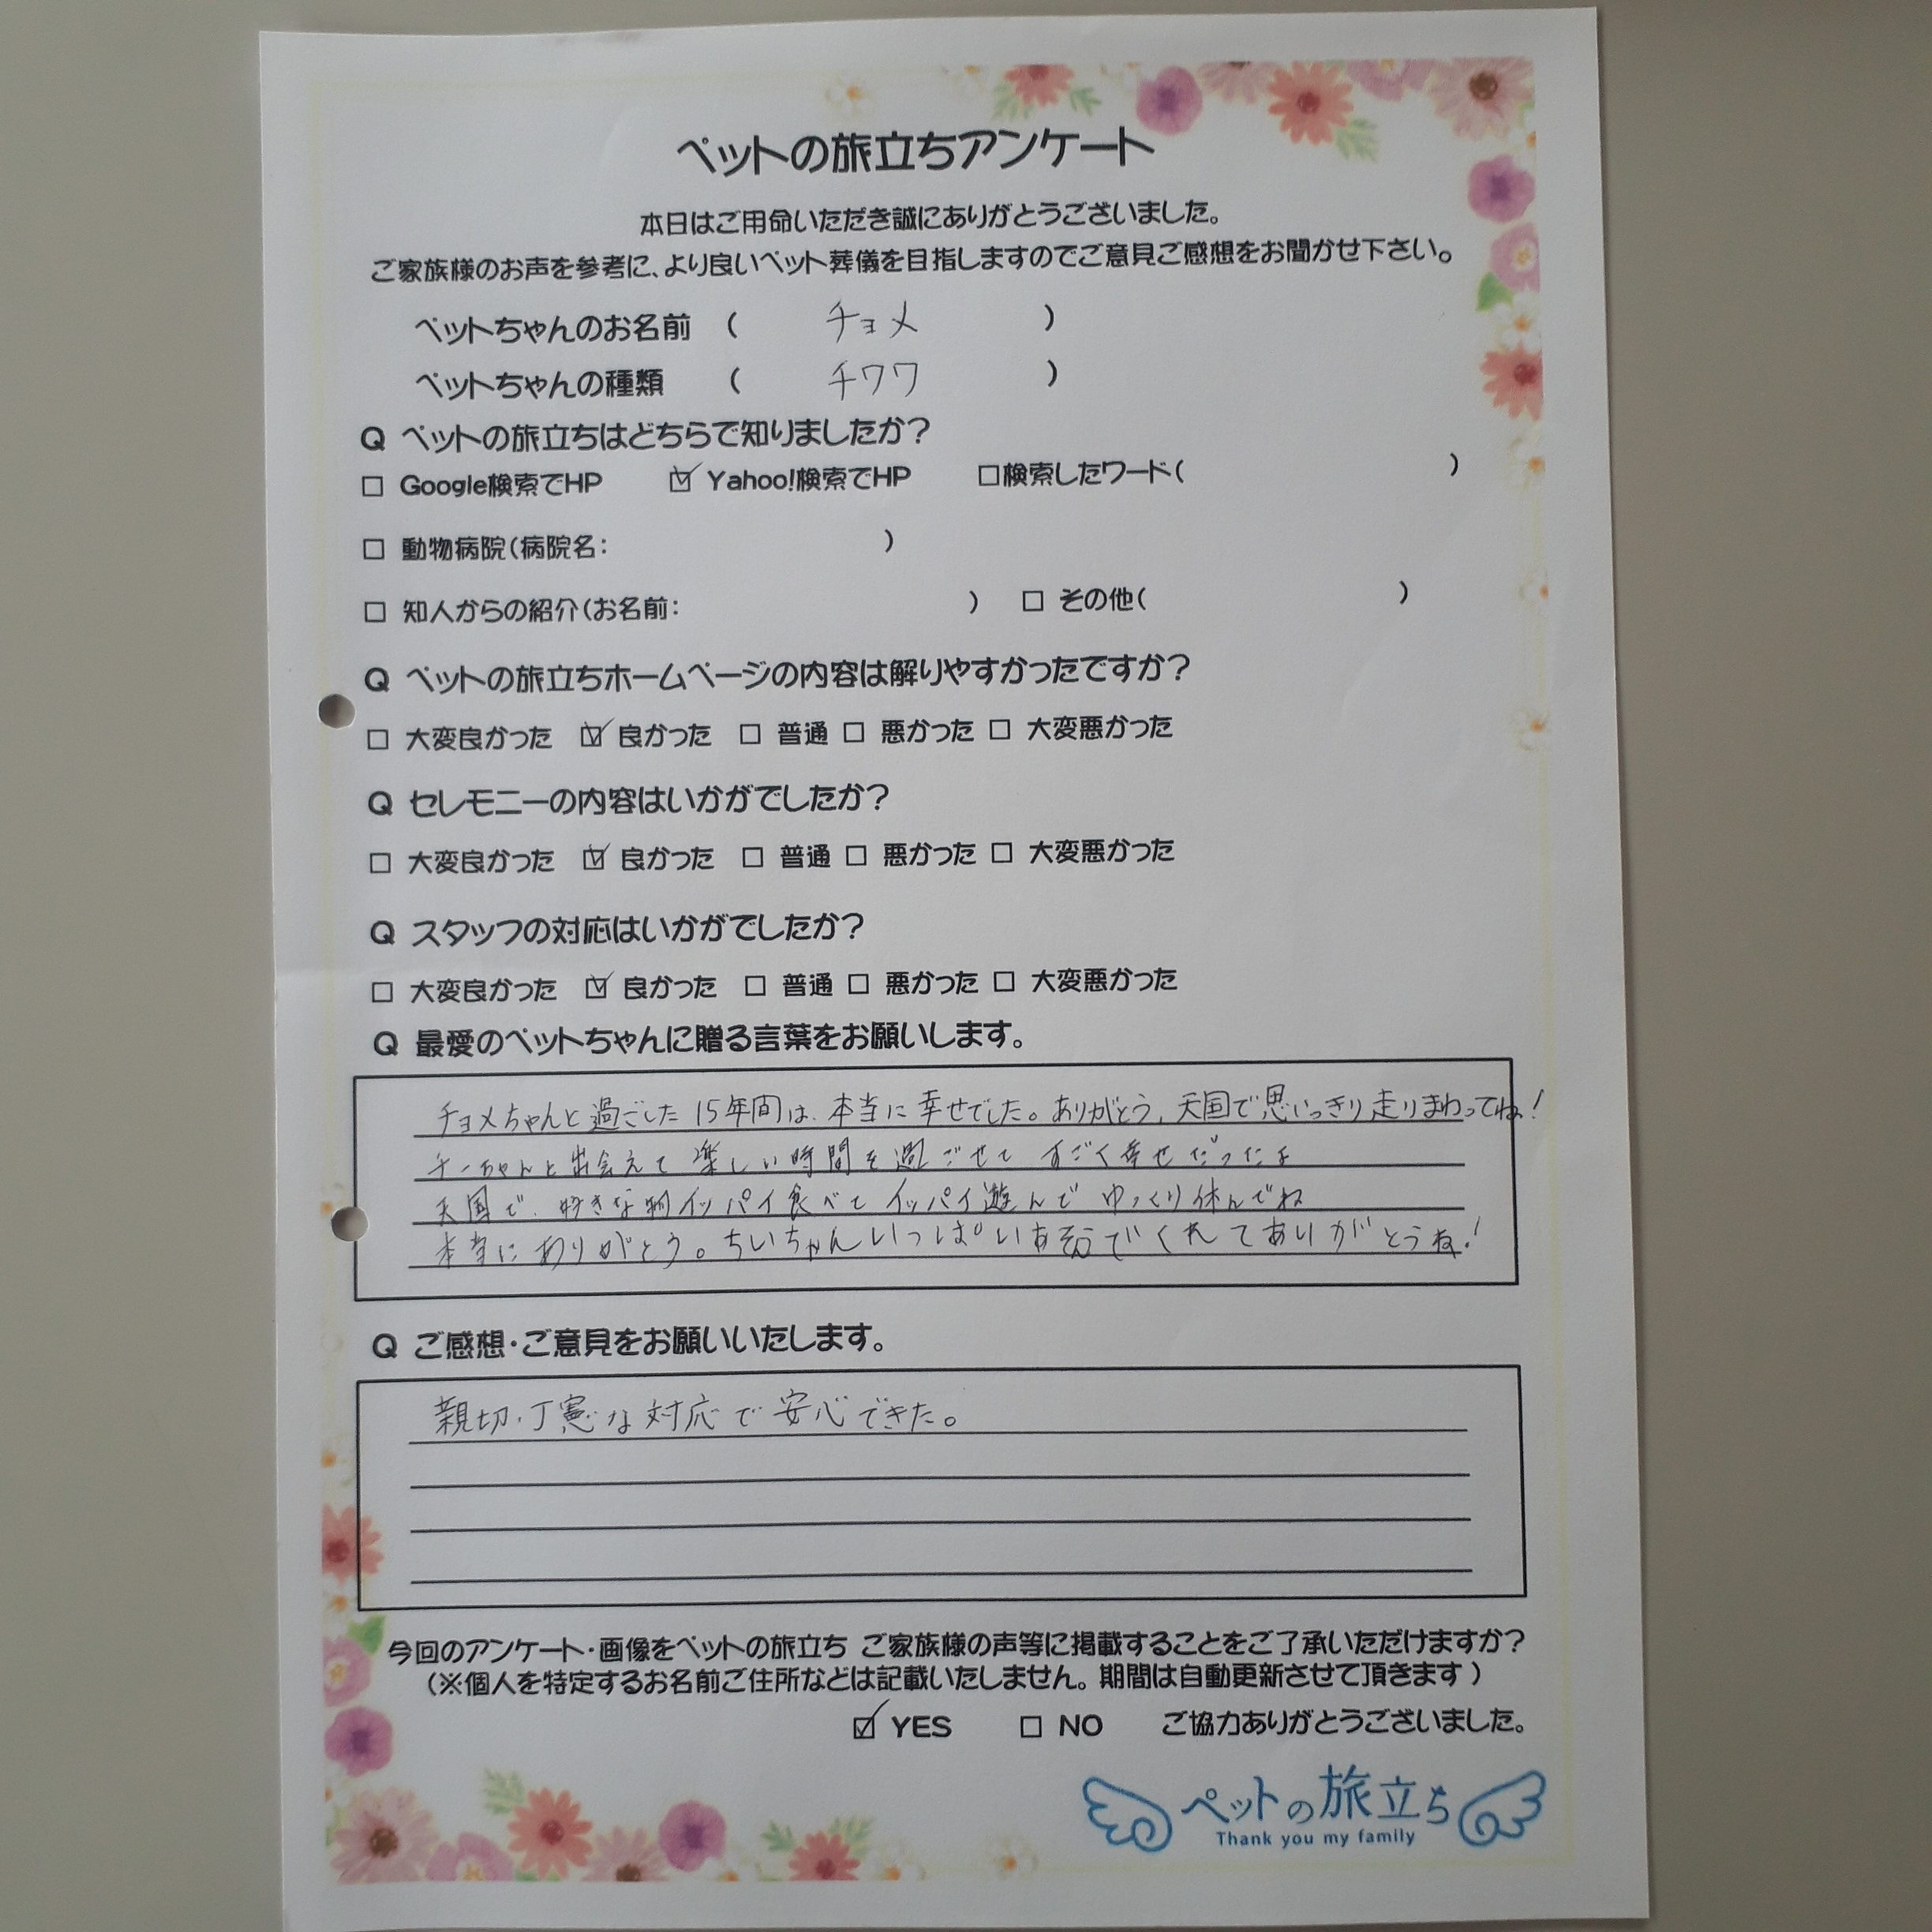 ペットの旅立ちアンケート
本日はご用命いただき誠にありがとうございました。
ご家族様のお声を参考に、より良いペット葬儀を目指しますのでご意見ご感想をお聞かせ下さい。
ペットちゃんのお名前 ( チョメ )
ペットちゃんの種類 ( チワワ )
Q ペットの旅立ちはどちらで知りましたか?
□ Google検索でHP ☑ Yahoo!検索でHP □検索したワード( )
□ 動物病院(病院名: )
□ 知人からの紹介(お名前: ) □ その他( )
Q ペットの旅立ちホームページの内容は解りやすかったですか?
□ 大変良かった ☑ 良かった □ 普通 □ 悪かった □ 大変悪かった
Q セレモニーの内容はいかがでしたか?
□ 大変良かった ☑ 良かった □ 普通 □ 悪かった □ 大変悪かった
Q スタッフの対応はいかがでしたか?
□ 大変良かった ☑ 良かった □ 普通 □ 悪かった □ 大変悪かった
Q 最愛のペットちゃんに贈る言葉をお願いします。
チョメちゃんと過ごした15年間は、本当に幸せでした。ありがとう、天国で思いっきり走りまわってね!
チーちゃんと出会えて楽しい時間を過ごせて すごく幸せだったよ
天国で、好きな物イッパイ食べてイッパイ遊んで ゆっくり休んでね
本当にありがとう。ちいちゃんいっぱいあそんでくれてありがとうね!
Q ご感想・ご意見をお願いいたします。
親切・丁寧な対応で安心できた。
今回のアンケート・画像をペットの旅立ち ご家族様の声等に掲載することをご了承いただけますか?
(※個人を特定するお名前ご住所などは記載いたしません。期間は自動更新させて頂きます)
☑ YES □ NO ご協力ありがとうございました。
ペットの旅立ち
Thank you my family